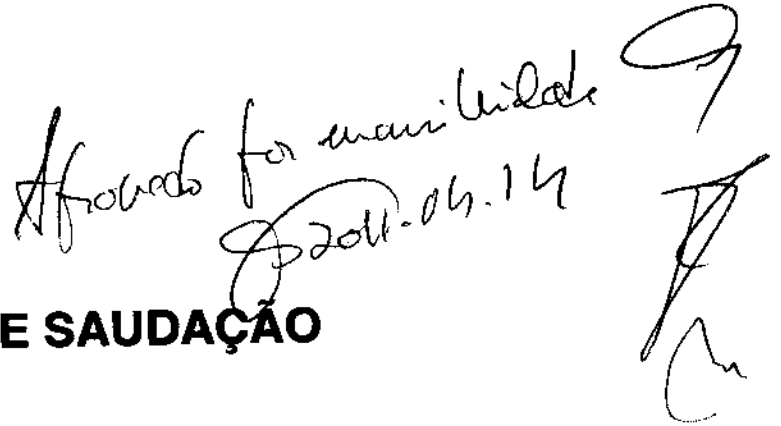 Aprovado por unanimidade
2011.04.14
E SAUDAÇÃO